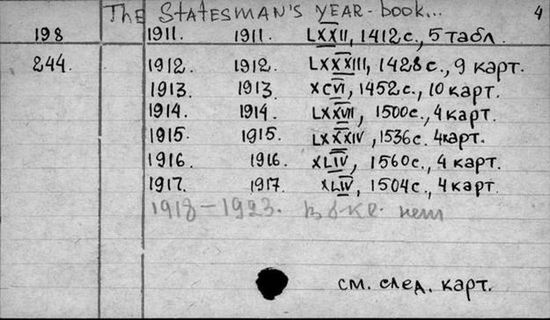 The Statesman's year-book... 4
198 1911. 1911. LXXII, 1412 с., 5 табл.
244. 1912. 1912. LXXXIII, 1428 с., 9 карт.
1913. 1913. XCVI, 1452 с., 10 карт.
1914. 1914. LXXVII, 1500 с., 4 карт.
1915. 1915. LXXXIV, 1536 с. 4 карт.
1916. 1916. XLIV, 1560 с., 4 карт.
1917. 1917. XLIV, 1504 с., 4 карт.
1918-1923. в б-ке нет
см. след. карт.